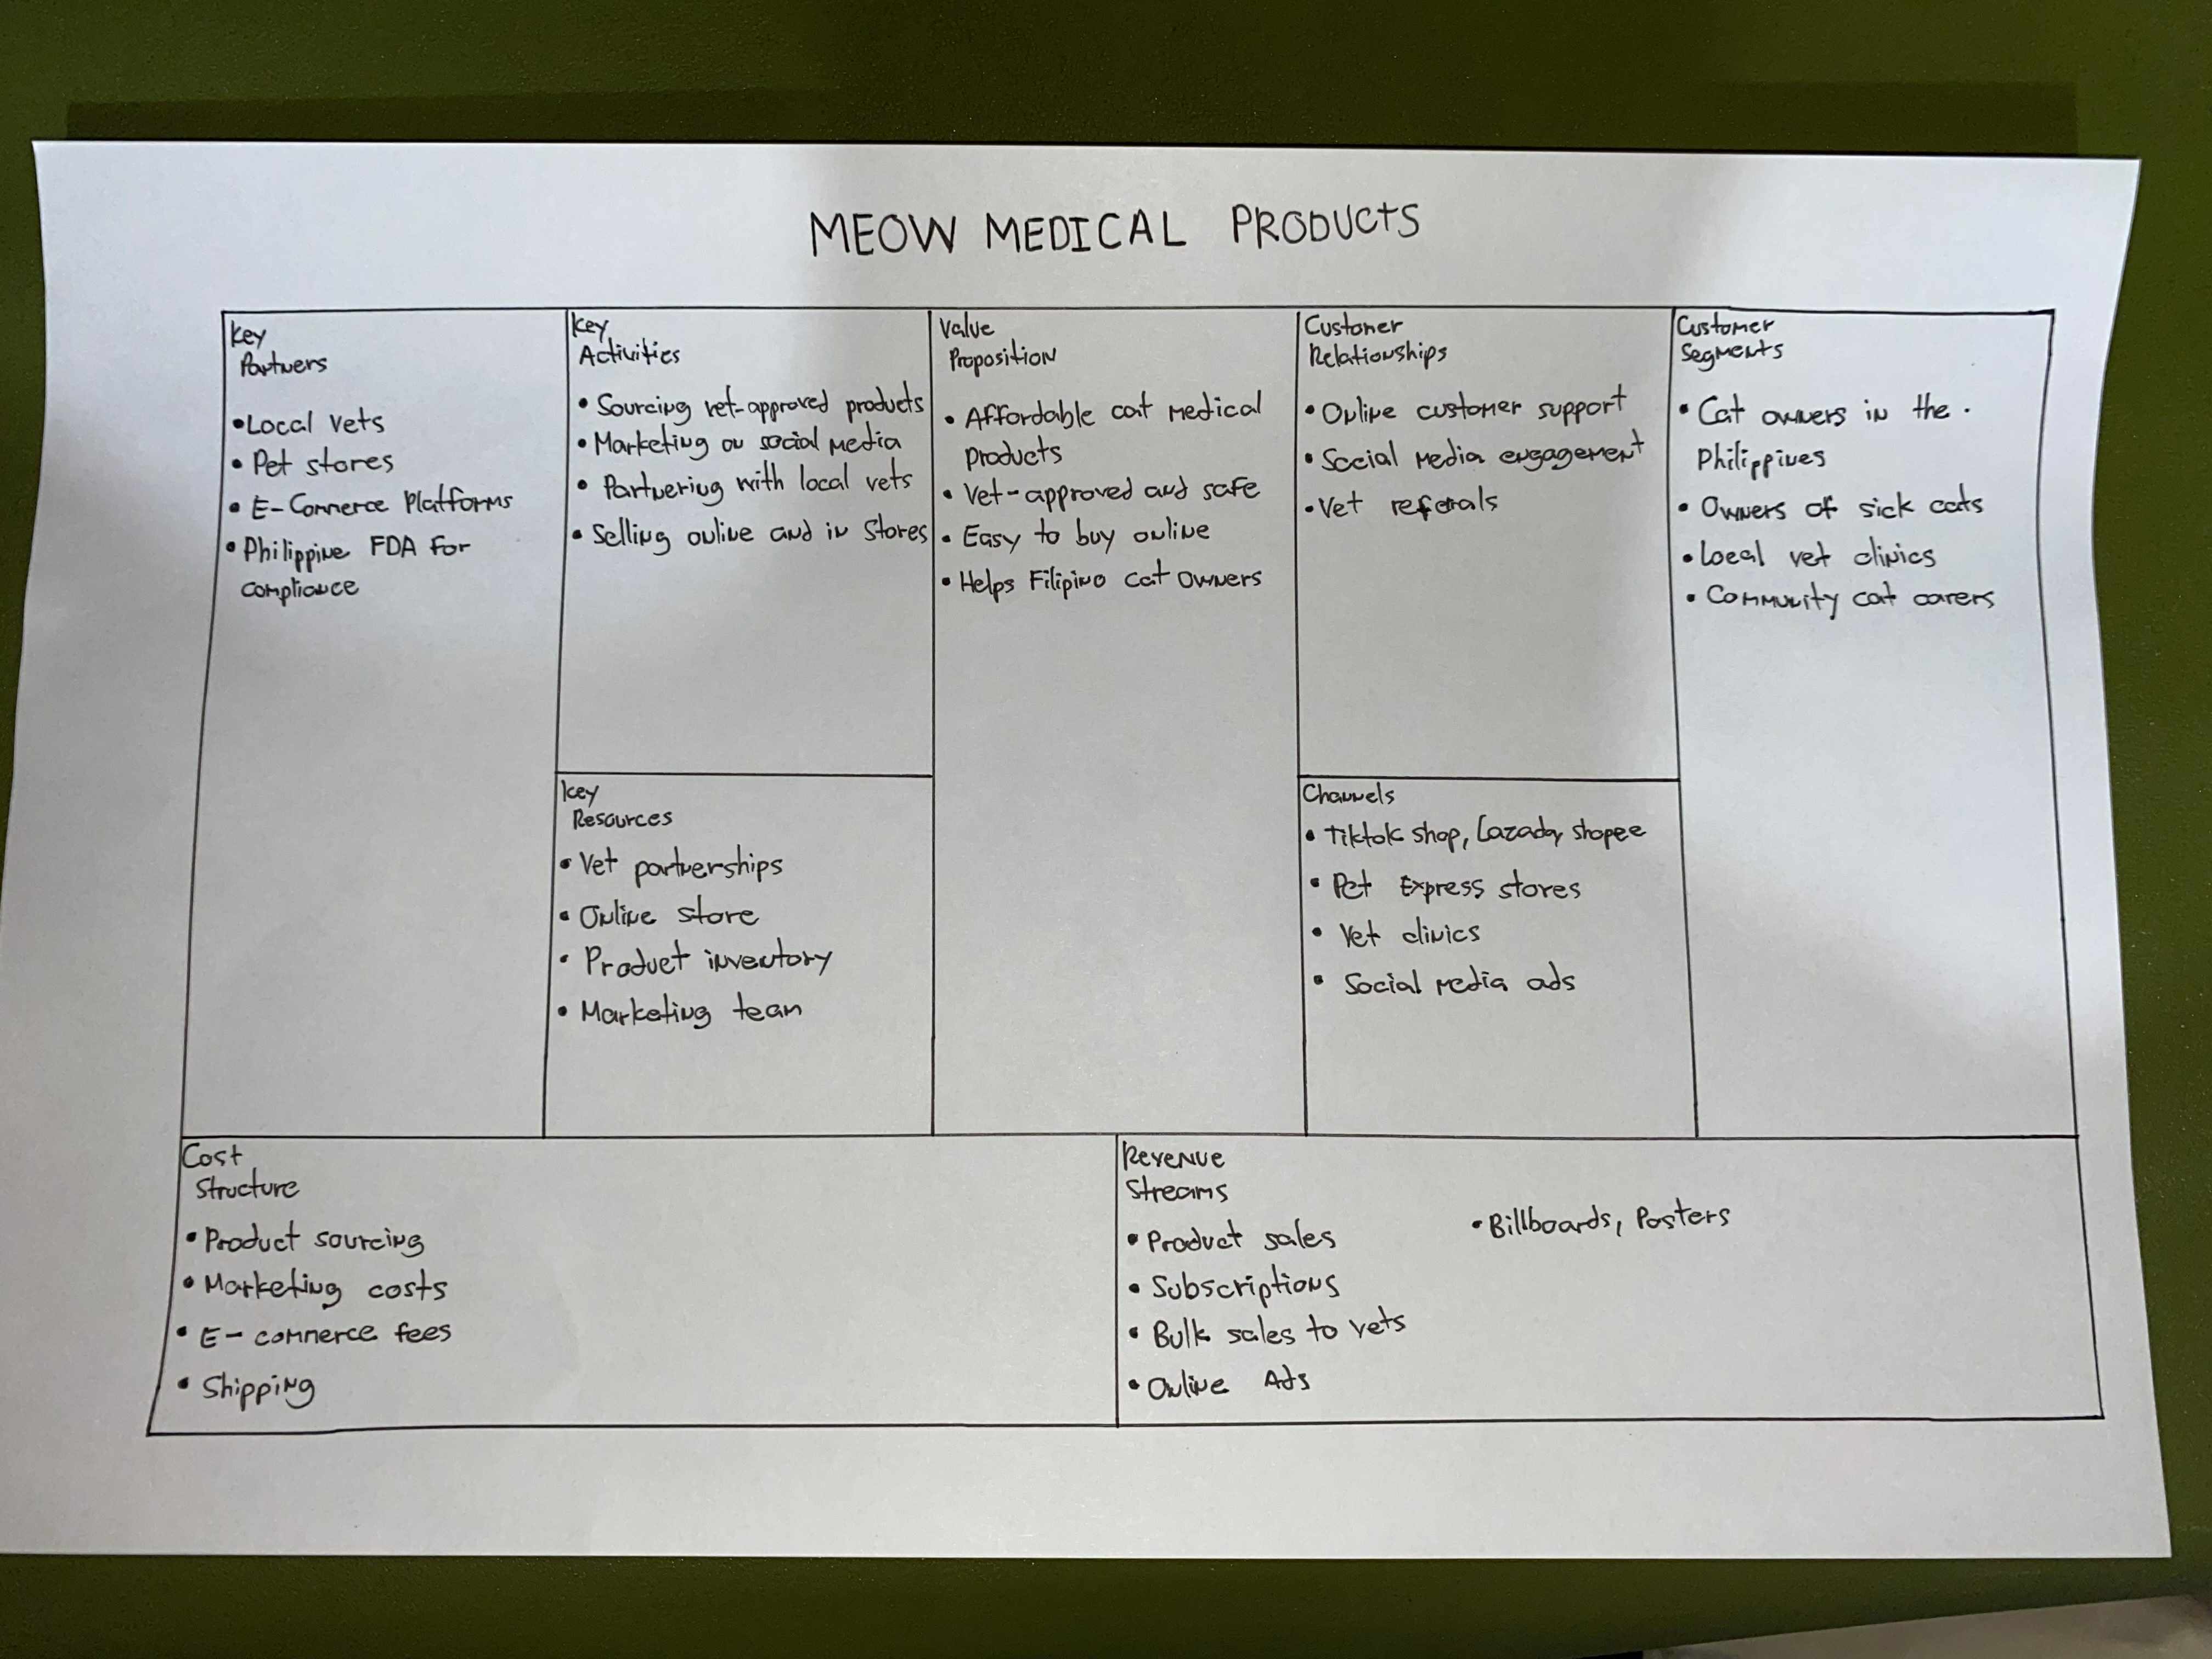 MEOW MEDICAL PRODUCTS
Key
Partners
• Local vets
• Pet stores
• E-Commerce Platforms
• Philippine FDA for
compliance
Key
Activities
• Sourcing vet-approved products
• Marketing on social media
• Partnering with local vets
• Selling online and in stores
Key
Resources
• Vet partnerships
• Online store
• Product inventory
• Marketing team
Value
Proposition
• Affordable cat medical
products
• Vet-approved and safe
• Easy to buy online
• Helps Filipino cat owners
Customer
Relationships
• Online customer support
• Social media engagement
• Vet referals
Channels
• Tiktok shop, Lazada, shopee
• Pet Express stores
• Vet clinics
• Social media ads
Customer
Segments
• Cat owners in the
Philippines
• Owners of sick cats
• Local vet clinics
• Community cat carers
Cost
Structure
• Product sourcing
• Marketing costs
• E-commerce fees
• Shipping
Revenue
Streams
• Product sales
• Subscriptions
• Bulk sales to vets
• Online Ads
• Billboards, Posters